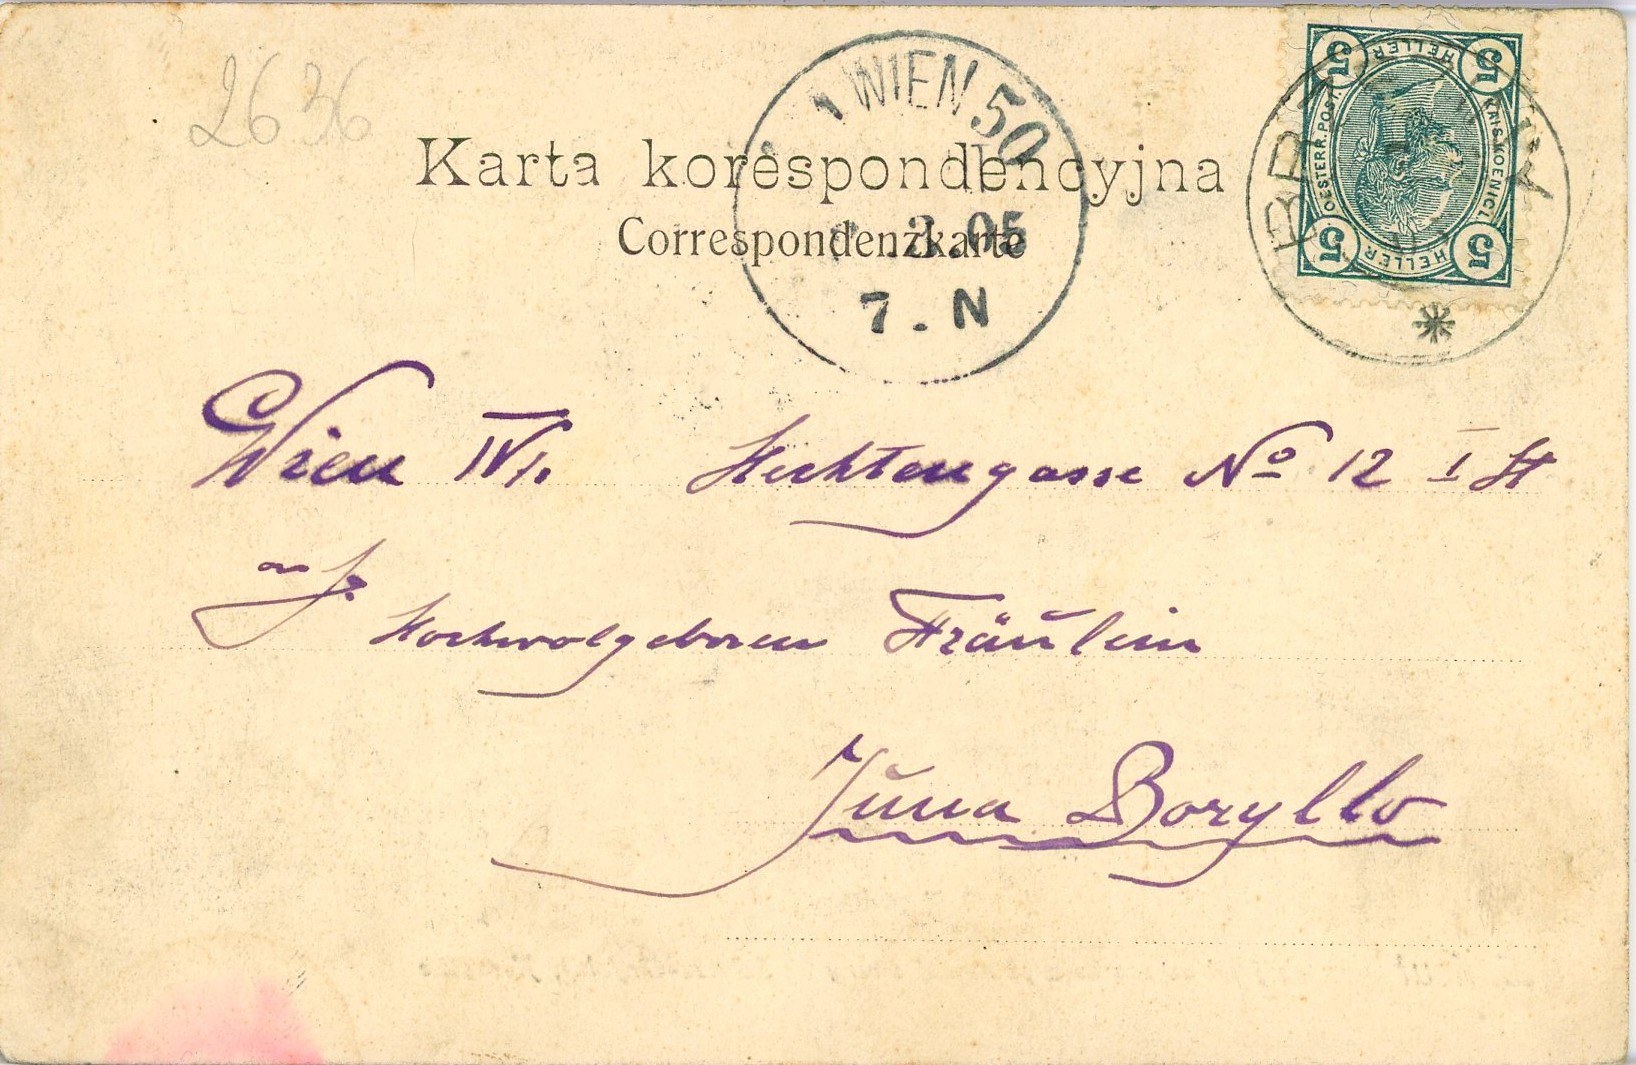 2636
1 WIEN 50
Karta korespondencyjna
Correspondenzkarte
3.05
7. N
5 HELLER 5
KAIS. KOENIGL.
OESTERR. POST
5 HELLER 5
Wien IV/1 Hechtengasse No 12 I St
An J.
Hochwolgeboren Fräulein
Boryllo